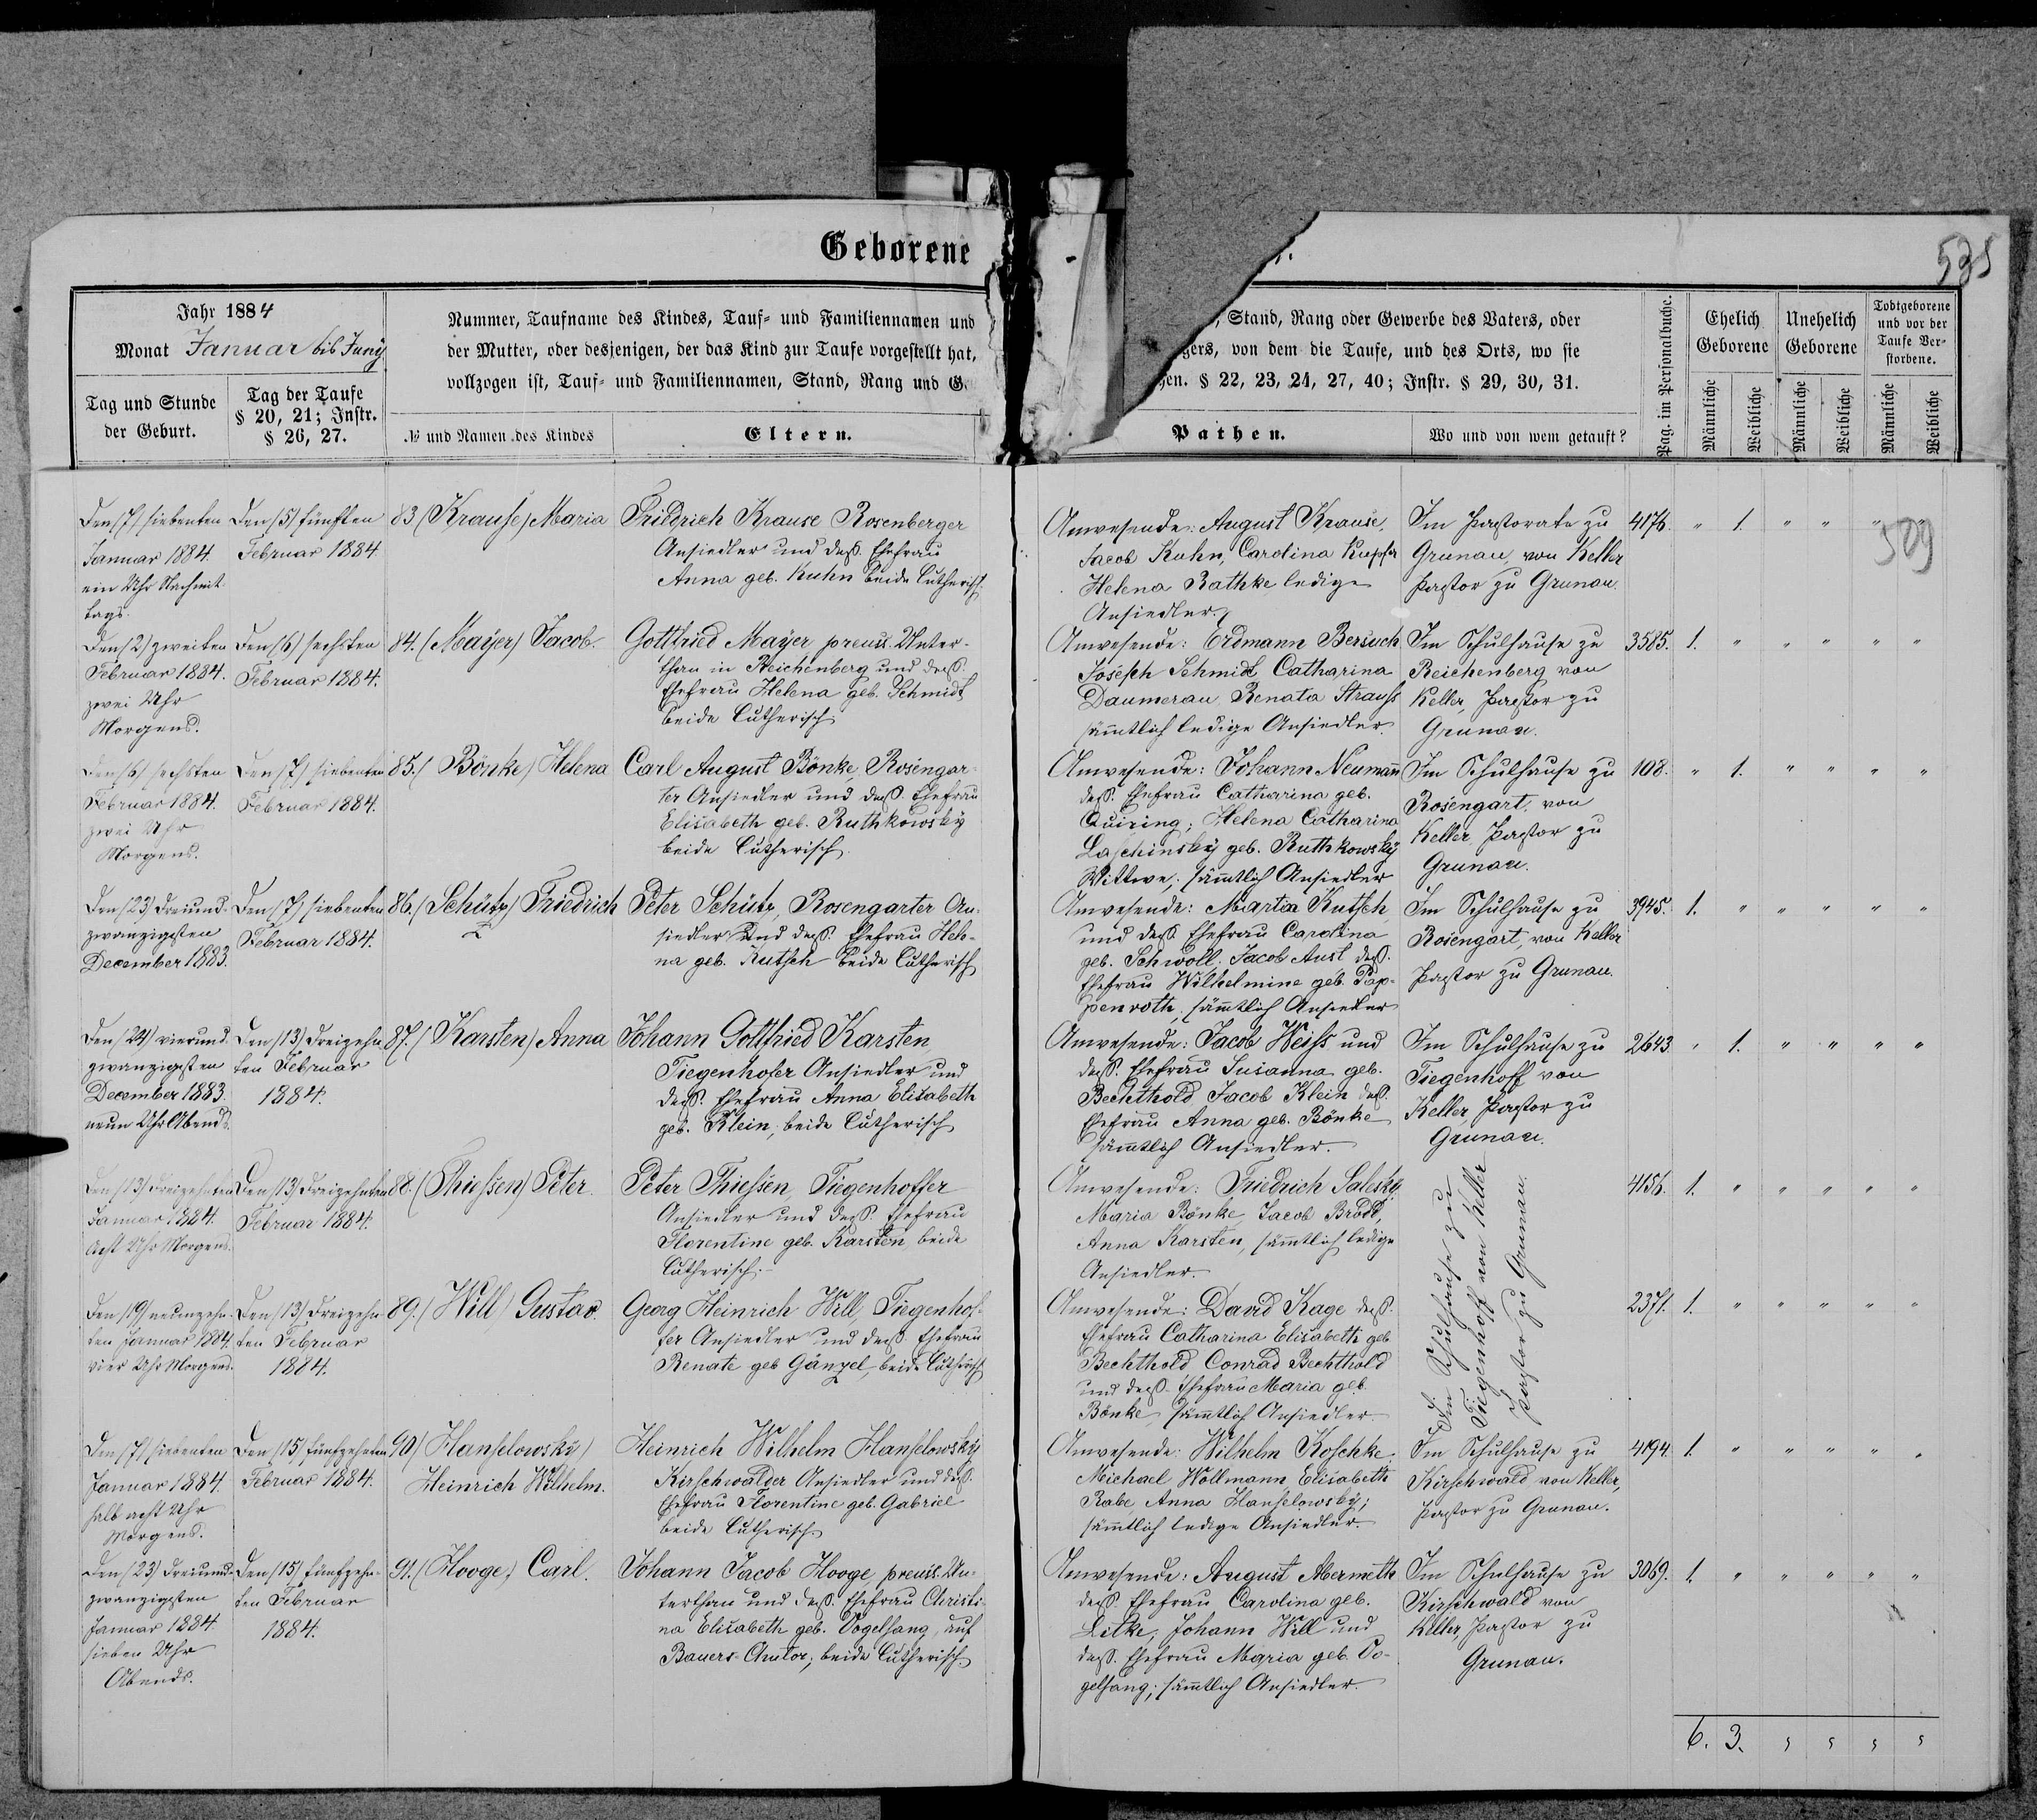 Geborene
535
Jahr 1884
Monat Januar bis Juny
Tag und Stunde der Geburt.
Tag der Taufe § 20, 21; Instr. § 26, 27.
Nummer, Taufname des Kindes, Tauf- und Familiennamen und
der Mutter, oder desjenigen, der das Kind zur Taufe vorgestellt hat,
vollzogen ist, Tauf- und Familiennamen, Stand, Rang und G
№ und Namen des Kindes
Eltern.
Stand, Rang oder Gewerbe des Vaters, oder
gers, von dem die Taufe, und des Orts, wo sie
hen. § 22, 23, 24, 27, 40; Instr. § 29, 30, 31.
Pathen.
Wo und von wem getauft?
Pag. im Personalbuche.
Ehelich Geborene
Unehelich Geborene
Todtgeborene und vor der Taufe Verstorbene.
Männliche
Weibliche
Männliche
Weibliche
Männliche
Weibliche
509
Den (7) siebenten
Januar 1884.
ein Uhr Nachmit-
tags.
Den (5) fünften
Februar 1884.
83 (Krause) Maria
Friedrich Krause Rosenberger
Ansiedler und dess. Ehefrau
Anna geb. Kuhn beide Lutherisch.
Anwesende: August Krause,
Jacob Kuhn, Carolina Kupfer
Helena Rathke ledige
Ansiedler.
Im Pastorate zu
Grunau, von Keller
Pastor zu Grunau.
4176. " 1. " " " "
Den (2) zweiten
Februar 1884.
zwei Uhr
Morgens.
Den (6) sechsten
Februar 1884.
84. (Mayer) Jacob.
Gottfried Mayer preuss. Unter-
than in Reichenberg und dess.
Ehefrau Helena geb. Schmidt
beide Lutherisch
Anwesende: Erdmann Bersuch
Joseph Schmidt Catharina
Daumerau Renata Strauss
sämmtlich ledige Ansiedler.
Im Schulhause zu
Reichenberg von
Keller, Pastor zu
Grunau.
3585. 1. " " " " "
Den (6) sechsten
Februar 1884.
zwei Uhr
Morgens.
Den (7) siebenten
Februar 1884.
85. (Bönke) Helena
Carl August Bönke, Rosengar-
ter Ansiedler und dess. Ehefrau
Elisabeth geb. Ruthkowsky
beide Lutherisch.
Anwesende: Johann Neumann
dess. Ehefrau Catharina geb.
Quiring; Helena Catharina
Laschinsky geb. Ruthkowsky
Wittwe; sämmtlich Ansiedler
Im Schulhause zu
Rosengart, von
Keller, Pastor zu
Grunau.
108. " 1. " " " "
Den (23) dreiund-
zwanzigsten
December 1883.
Den (7) siebenten
Februar 1884.
86. (Schütz) Friedrich
Peter Schütz, Rosengarter An-
siedler und dess. Ehefrau Hele-
na geb. Kutsch beide Lutherisch
Anwesende: Martin Kutsch
und dess. Ehefrau Carolina
geb. Schwoll. Jacob Aust dess.
Ehefrau Wilhelmine geb. Pap-
penroth, sämmtlich Ansiedler
Im Schulhause zu
Rosengart, von Keller
Pastor zu Grunau.
3945. 1. " " " " "
Den (24) vierund-
zwanzigsten
December 1883.
neun Uhr Abends.
Den (13) dreizehn-
ten Februar
1884.
87. (Karsten) Anna
Johann Gottfried Karsten
Tiegenhofer Ansiedler und
dess. Ehefrau Anna Elisabeth
geb. Klein; beide Lutherisch
Anwesende: Jacob Weiss und
dess. Ehefrau Susanna geb.
Bechthold Jacob Klein dess.
Ehefrau Anna geb. Bönke
sämmtlich Ansiedler.
Im Schulhause zu
Tiegenhoff von
Keller, Pastor zu
Grunau.
2643 " 1. " " " "
Den (13) dreizehnten
Januar 1884.
acht Uhr Morgens.
Den (13) dreizehnten
Februar 1884.
88. (Thiessen) Peter.
Peter Thiessen, Tiegenhoffer
Ansiedler und dess. Ehefrau
Florentine geb. Karsten, beide
Lutherisch.
Anwesende: Friedrich Salesky,
Maria Bönke, Jacob Brodt,
Anna Karsten, sämmtlich ledige
Ansiedler.
Im Schulhause zu
Tiegenhoff von Keller
Pastor zu Grunau.
4156. 1. " " " " "
Den (19) neunzehn-
ten Januar 1884.
vier Uhr Morgens.
Den (13) dreizehn-
ten Februar
1884.
89. (Will) Gustav.
Georg Heinrich Will, Tiegenhof-
fer Ansiedler und dess. Ehefrau
Renate geb. Gänzel, beide Lutherisch
Anwesende: David Kage dess.
Ehefrau Catharina Elisabeth geb
Bechthold Conrad Bechthold
und dess. Ehefrau Maria geb.
Bönke, sämmtlich Ansiedler.
2371. 1. " " " " "
Den (7) siebenten
Januar 1884.
halb acht Uhr
Morgens.
Den (15) fünfzehnten
Februar 1884.
90. (Hanselowsky)
Heinrich Wilhelm.
Heinrich Wilhelm Hanselowsky
Kirschwalder Ansiedler und dess.
Ehefrau Florentine geb. Gabriel
beide Lutherisch
Anwesende: Wilhelm Koschke,
Michael Wöllmann Elisabeth
Rabe, Anna Hanselowsky;
sämmtlich ledige Ansiedler.
Im Schulhause zu
Kirschwald, von Keller,
Pastor zu Grunau.
4194. 1. " " " " "
Den (23) dreiund-
zwanzigsten
Januar 1884.
sieben Uhr
Abends.
Den (15) fünfzehn-
ten Februar
1884.
91. (Hooge) Carl.
Johann Jacob Hooge, preuss. Un-
terthan und dess. Ehefrau Christi-
na Elisabeth geb. Vogelsang, auf
Bauers-Chutor; beide Lutherisch
Anwesende: August Abermeth
dess. Ehefrau Carolina geb.
Litke, Johann Will und
dess. Ehefrau Maria geb. Vo-
gelsang; sämmtlich Ansiedler.
Im Schulhause zu
Kirschwald von
Keller, Pastor zu
Grunau.
3069. 1. " " " " "
6. 3. " " " "